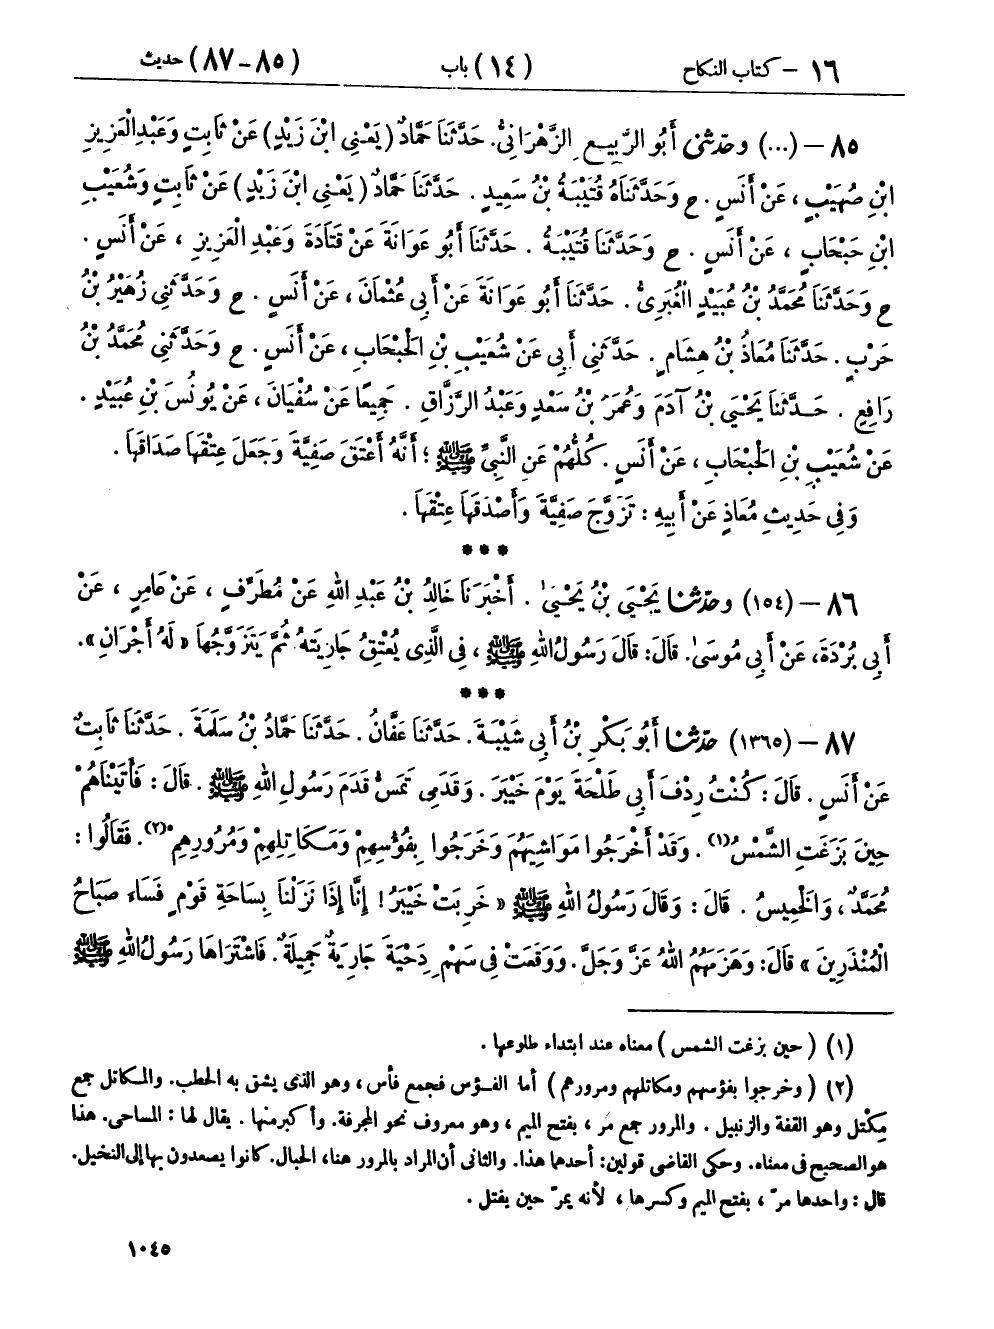 ١٦ – كتاب النكاح (١٤) باب (٨٥-٨٧) حديث
٨٥ – (...) وحَدَّثَنِي أَبُو الرَّبِيعِ الزَّهْرَانِيُّ. حَدَّثَنَا حَمَّادٌ (يَعْنِي ابْنَ زَيْدٍ) عَنْ ثَابِتٍ وَعَبْدِ الْعَزِيزِ
ابْنِ صُهَيْبٍ، عَنْ أَنَسٍ. ح وَحَدَّثَنَاهُ قُتَيْبَةُ بْنُ سَعِيدٍ. حَدَّثَنَا حَمَّادٌ (يَعْنِي ابْنَ زَيْدٍ) عَنْ ثَابِتٍ وَشُعَيْبِ
ابْنِ حَبْحَابٍ، عَنْ أَنَسٍ. ح وَحَدَّثَنَا قُتَيْبَةُ. حَدَّثَنَا أَبُو عَوَانَةَ عَنْ قَتَادَةَ وَعَبْدِ الْعَزِيزِ، عَنْ أَنَسٍ.
ح وَحَدَّثَنَا مُحَمَّدُ بْنُ عُبَيْدٍ الْغُبَرِيُّ. حَدَّثَنَا أَبُو عَوَانَةَ عَنْ أَبِي عُثْمَانَ، عَنْ أَنَسٍ. ح وَحَدَّثَنِي زُهَيْرُ بْنُ
حَرْبٍ. حَدَّثَنَا مُعَاذُ بْنُ هِشَامٍ. حَدَّثَنِي أَبِي عَنْ شُعَيْبِ بْنِ الْحَبْحَابِ، عَنْ أَنَسٍ. ح وَحَدَّثَنِي مُحَمَّدُ بْنُ
رَافِعٍ. حَدَّثَنَا يَحْيَى بْنُ آدَمَ وَعُمَرُ بْنُ سَعْدٍ وَعَبْدُ الرَّزَّاقِ. جَمِيعًا عَنْ سُفْيَانَ، عَنْ يُونُسَ بْنِ عُبَيْدٍ.
عَنْ شُعَيْبِ بْنِ الْحَبْحَابِ، عَنْ أَنَسٍ. كُلُّهُمْ عَنِ النَّبِيِّ ﷺ؛ أَنَّهُ أَعْتَقَ صَفِيَّةَ وَجَعَلَ عِتْقَهَا صَدَاقَهَا.
وَفِي حَدِيثِ مُعَاذٍ عَنْ أَبِيهِ: تَزَوَّجَ صَفِيَّةَ وَأَصْدَقَهَا عِتْقَهَا.
***
٨٦ – (١٥٤) وحَدَّثَنَا يَحْيَى بْنُ يَحْيَى. أَخْبَرَنَا خَالِدُ بْنُ عَبْدِ اللهِ عَنْ مُطَرِّفٍ، عَنْ عَامِرٍ، عَنْ
أَبِي بُرْدَةَ، عَنْ أَبِي مُوسَى. قَالَ: قَالَ رَسُولُ اللهِ ﷺ، فِي الَّذِي يُعْتِقُ جَارِيَتَهُ ثُمَّ يَتَزَوَّجُهَا «لَهُ أَجْرَانِ».
***
٨٧ – (١٣٦٥) حَدَّثَنَا أَبُو بَكْرِ بْنُ أَبِي شَيْبَةَ. حَدَّثَنَا عَفَّانُ. حَدَّثَنَا حَمَّادُ بْنُ سَلَمَةَ. حَدَّثَنَا ثَابِتٌ
عَنْ أَنَسٍ. قَالَ: كُنْتُ رِدْفَ أَبِي طَلْحَةَ يَوْمَ خَيْبَرَ. وَقَدَمِي تَمَسُّ قَدَمَ رَسُولِ اللهِ ﷺ. قَالَ: فَأَتَيْنَاهُمْ
حِينَ بَزَغَتِ الشَّمْسُ(١). وَقَدْ أَخْرَجُوا مَوَاشِيَهُمْ وَخَرَجُوا بِفُؤُسِهِمْ وَمَكَاتِلِهِمْ وَمُرُورِهِمْ(٢). فَقَالُوا:
مُحَمَّدٌ، وَالْخَمِيسُ. قَالَ: وَقَالَ رَسُولُ اللهِ ﷺ «خَرِبَتْ خَيْبَرُ! إِنَّا إِذَا نَزَلْنَا بِسَاحَةِ قَوْمٍ فَسَاءَ صَبَاحُ
الْمُنْذَرِينَ» قَالَ: وَهَزَمَهُمُ اللهُ عَزَّ وَجَلَّ. وَوَقَعَتْ فِي سَهْمِ دِحْيَةَ جَارِيَةٌ جَمِيلَةٌ. فَاشْتَرَاهَا رَسُولُ اللهِ ﷺ
(١) (حين بزغت الشمس) معناه عند ابتداء طلوعها.
(٢) (وخرجوا بفؤسهم ومكاتلهم ومرورهم) أما الفؤس فجمع فأس، وهو الذى يشق به الحطب. والمكاتل جمع
مِكْتل وهو القفة والزنبيل. والمرور جمع مَر، بفتح الميم، وهو معروف نحو المجرفة. وأكبر منها. يقال لها: المساحى. هذا
هو الصحيح فى معناه. وحكى القاضى قولين: أحدهما هذا. والثانى أن المراد بالمرور هنا، الحبال. كانوا يصعدون بها إلى النخيل.
قال: واحدها مرّ، بفتح الميم وكسرها، لأنه يمرّ حين يفتل.
١٠٤٥